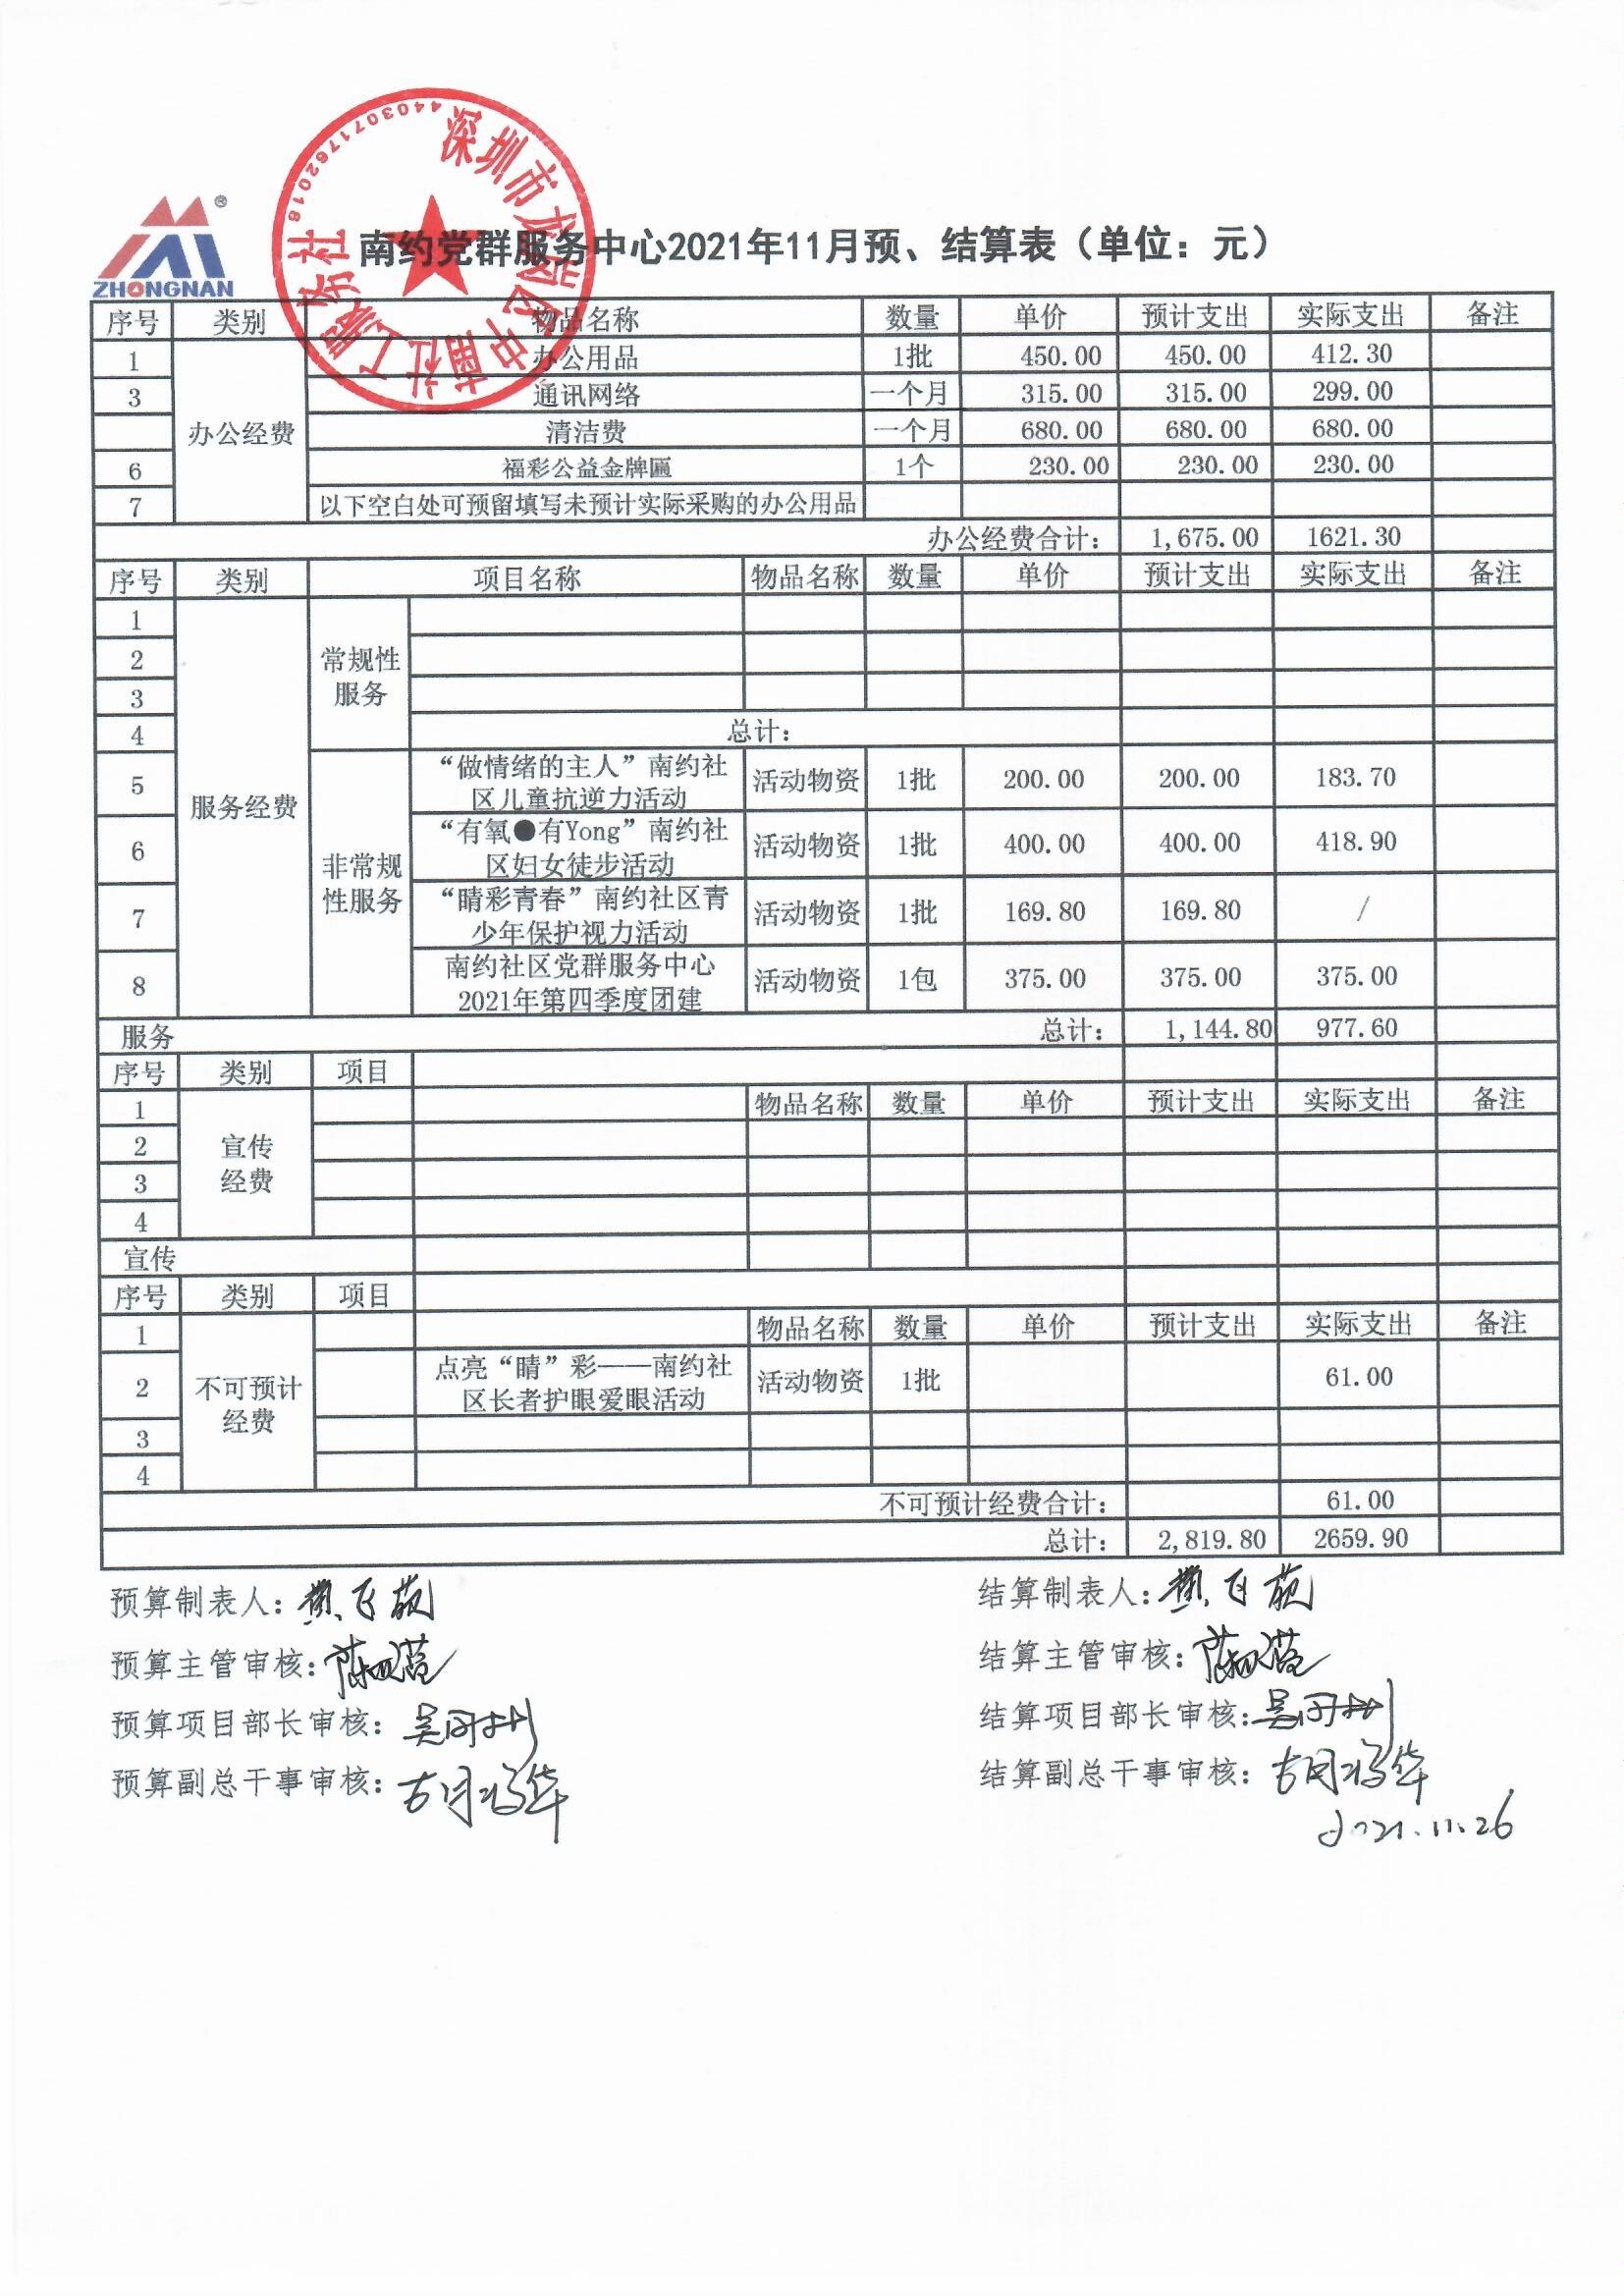 4403071762018
深圳市龙岗区中南社工服务社
ZHONGNAN
®
南约党群服务中心2021年11月预、结算表（单位：元）
序号 类别 物品名称 数量 单价 预计支出 实际支出 备注
1 办公用品 1批 450.00 450.00 412.30
3 通讯网络 一个月 315.00 315.00 299.00
办公经费 清洁费 一个月 680.00 680.00 680.00
6 福彩公益金牌匾 1个 230.00 230.00 230.00
7 以下空白处可预留填写未预计实际采购的办公用品
办公经费合计： 1,675.00 1621.30
序号 类别 项目名称 物品名称 数量 单价 预计支出 实际支出 备注
1
2 常规性
3 服务
4 总计：
服务经费
非常规
性服务
5 “做情绪的主人”南约社 活动物资 1批 200.00 200.00 183.70
区儿童抗逆力活动
6 “有氧●有Yong”南约社 活动物资 1批 400.00 400.00 418.90
区妇女徒步活动
7 “睛彩青春”南约社区青 活动物资 1批 169.80 169.80 /
少年保护视力活动
8 南约社区党群服务中心 活动物资 1包 375.00 375.00 375.00
2021年第四季度团建
服务 总计： 1,144.80 977.60
序号 类别 项目
1 物品名称 数量 单价 预计支出 实际支出 备注
2 宣传
3 经费
4
宣传
序号 类别 项目
1 物品名称 数量 单价 预计支出 实际支出 备注
不可预计
经费
2 点亮“睛”彩——南约社 活动物资 1批 61.00
区长者护眼爱眼活动
3
4
不可预计经费合计： 61.00
总计： 2,819.80 2659.90
预算制表人： 结算制表人：
预算主管审核： 结算主管审核：
预算项目部长审核： 结算项目部长审核：
预算副总干事审核： 结算副总干事审核：
2021.11.26